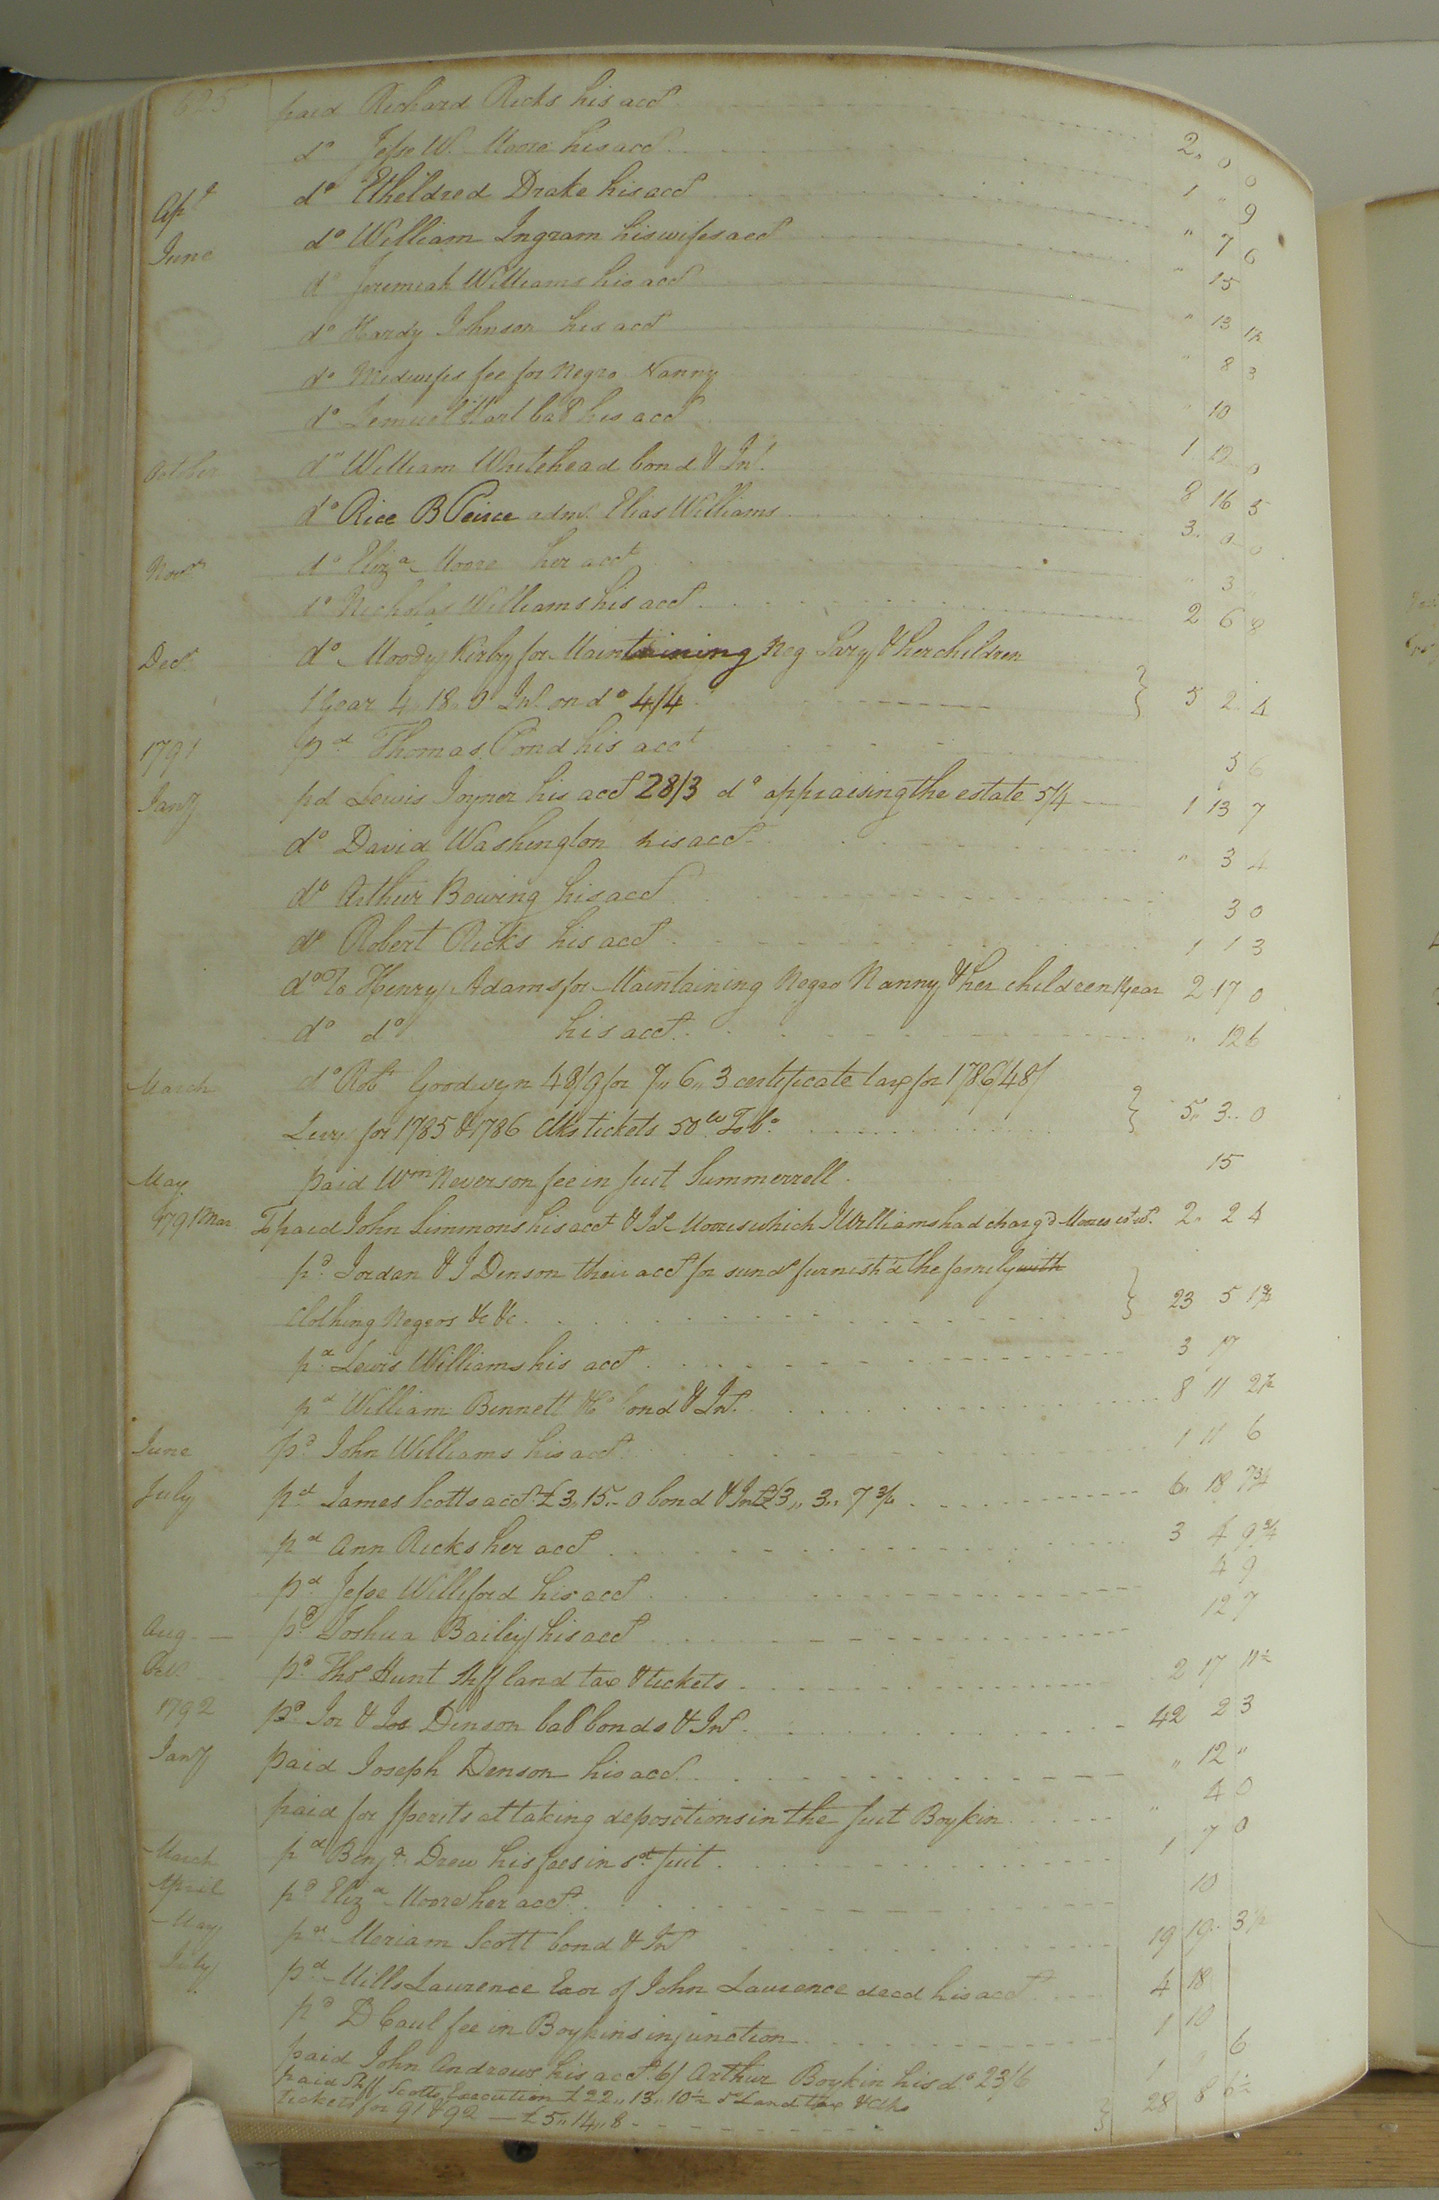 625 paid Richard Ricks his acct 2 0 0
do Jesse W. Moore his acct 1 " 9
Apl do Etheldred Drake his acct " 7 6
June do William Ingram his wifes acct " 15
do Jeremiah Williams his acct " 13 1½
do Hardy Johnson his acct " 8 3
do Midwifes fee for Negro Nanny " 10
do Lemuel Hart bal his acct 1 12 0
October do William Whitehead bond & Int. 8 16 5
do Rice B Peirce admr. Elias Williams 3 0 0
Novr do Eliza Moore her acct " 3
do Nicholas Williams his acct 2 6 8
Decr do Moody Kirby for Maintaining Neg Sary & her children
1 year 4 18 0 Int. on do 4/4 } 5 2 4
1791 pd Thomas Pond his acct 5 6
Jany pd Lewis Joyner his acct 28/3 do appraising the estate 5/4 1 13 7
do David Washington his acct " 3 4
do Arthur Bowing his acct 3 0
do Robert Ricks his acct 1 1 3
do To Henry Adams for Maintaining Negro Nanny & her children 1 year 2 17 0
do do his acct " 12 6
March do Robt Goodwyn 48/9 for 7,, 6,, 3 certificate tax for 1786/48/
Levy for 1785 & 1786 Clks tickets 50 lb Tobo } 5 3 0
May paid Wm Neverson fee in suit Summerrell 15
1791 Mar To paid John Simmons his acct & Moores which J Williams had chargd Moores 2 2 4
pd Jordan & J Denson their acct for sunds furnish'd the family with
Clothing Negros &c &c } 23 5 1¾
pd Lewis Williams his acct 3 17
pd William Bennett bond & Int. 8 11 2½
June pd John Williams his acct 1 11 6
July pd James Scotts acct £3,, 15,, 0 bond & Int £3,, 3,, 7¾ 6 18 7¾
pd Ann Ricks her acct 3 4 9¾
pd Jesse Williford his acct 4 9
Aug pd Joshua Bailey his acct 12 7
pd Thos Hunt Shff land tax & tickets 2 17 11½
1792 pd Jor & Jos Denson bal bonds & Int 42 2 3
Jany paid Joseph Denson his acct " 12 "
paid for sperits at taking depositions in the suit Boykin " 4 0
March pd Benja Drew his fees in sd suit 1 7 0
April pd Eliza Moore her acct 10
May pd Meriam Scott bond & Int 19 19 3½
July pd Mills Laurence Exor of John Laurence decd his acct 4 18
pd D Caul fee in Boykins injunction 1 10
paid John Andrews his acct 6/ Arthur Boykin his do 23/6 1 6
paid Shff Scotts Execution £22,, 13,, 10½ do Land tax & Clks
tickets for 91 & 92 — £5,, 14,, 8 } 28 8 6½